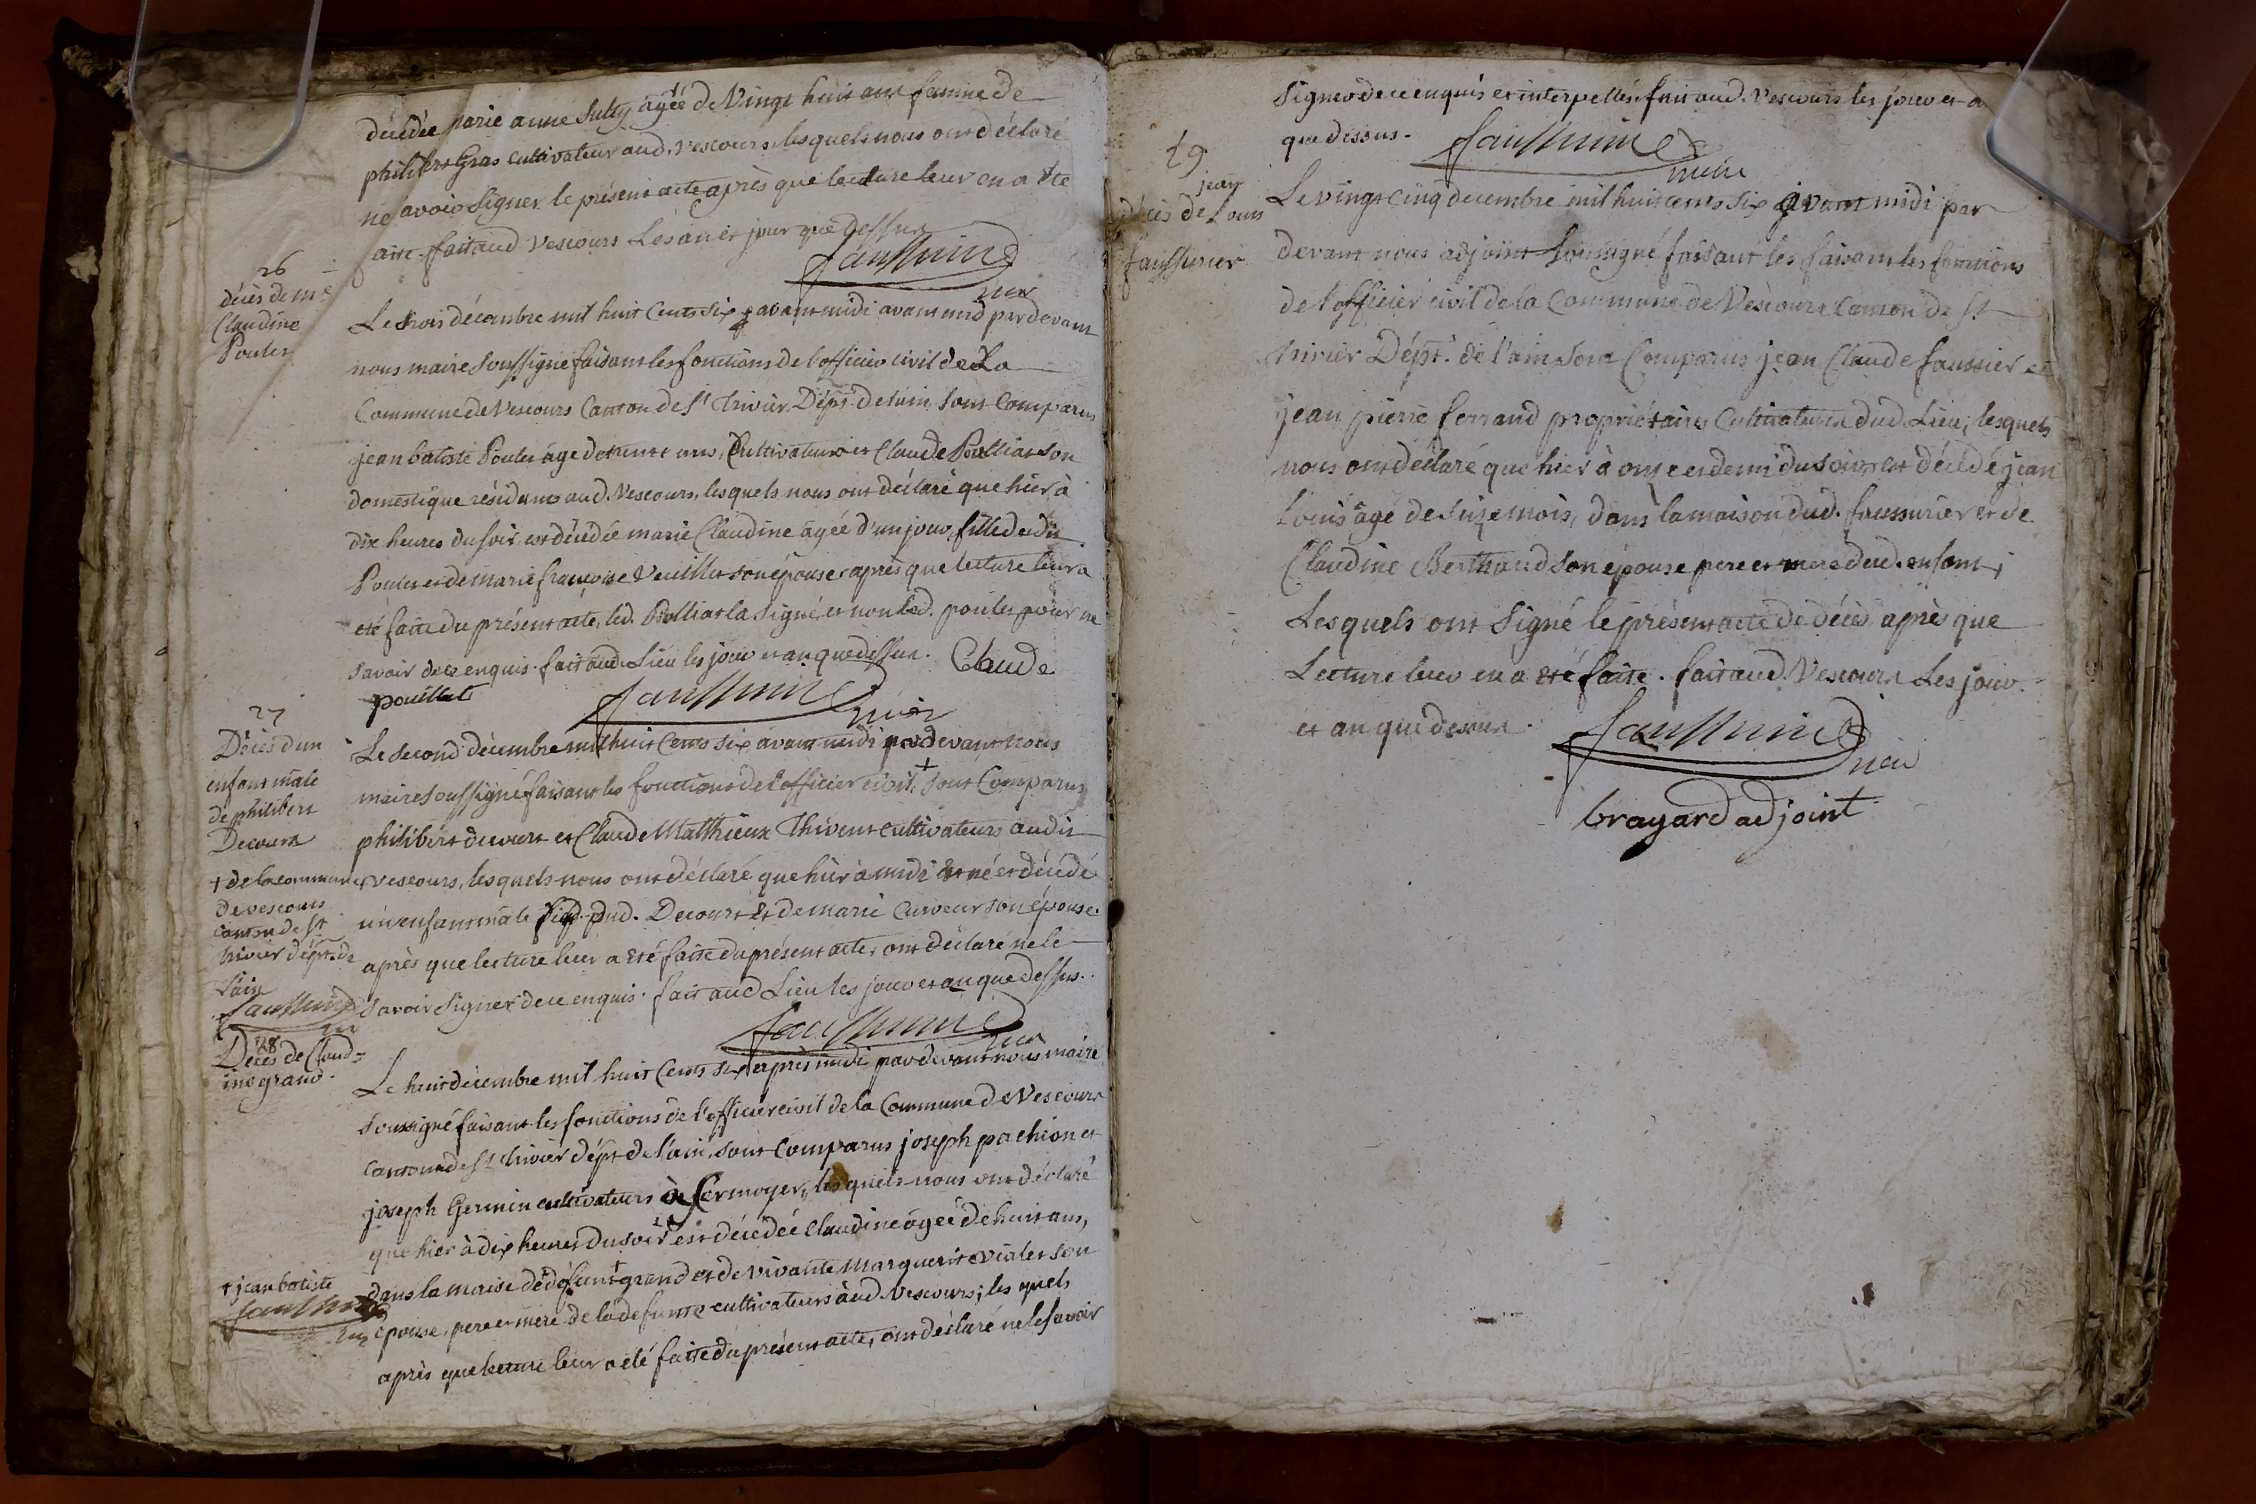 décédée marie anne Sulty agée de Vingt huit ans femme de
philibert Gras cultivateur aud. Vescours, lesquels nous ont déclaré
ne savoir Signer le présent acte après que lecture leur en a été
aite. fait aud Vescours Les an et jour que dessus
26
décès de me
Claudine
Poulet
Le trois décembre mil huit Cents six avant midi avant midi par devant
nous maire Soussigné faisant les fonctions de l'officier civil de La
Commune de Vescours Canton de St Trivier Dépt. de lain, Sont Comparus
jean batiste Poulet âgé de trente ans, Cultivateur et Claude Poulliat Son
domestique résidents aud. Vescours, lesquels nous ont déclaré que hier à
dix heures du Soir, est décédée marie Claudine âgée d'un jour, fille dudit
Poulet et de marie françoise Veuillet son épouse, après que lecture leur a
été faite du présent acte, led. Poulliat la Signé, et non led. poulet pour ne
savoir de ce enquis. fait aud. Lieu les jour et an que dessus. Claude
pouillat
27
Décès d'un
enfant mâle
de philibert
Decourt
Le Second décembre mil huit Cents Six avant midi par devant nous
maire Soussigné faisant les fonctions de l'officier civil, + Sont Comparus
philibert decourt et Claude Matthieux Thivent cultivateurs audit
+ de la commune
de vescours
canton de St
trivier dépt. de
l'ain
vescours, lesquels nous ont déclaré que hier à midi est né et décédé
un enfant mâle dud. Decourt et de marie Curveur son épouse.
après que lecture leur a été faite du présent acte, ont déclaré ne le
savoir Signer de ce enquis. fait aud Lieu les jour et an que dessus.
28
Décès de Claud=
ine grand.
Le huit décembre mil huit Cents Six après midi par devant nous maire
Soussigné faisant les fonctions de l'officier civil de la Commune de Vescours
canton de St trivier dépt. de l'ain, sont Comparus joseph pachion et
joseph Germin cultivateurs à Sermoyer, lesquels nous ont déclaré
que hier à dix heures du soir est décédée Claudine âgée de huit ans,
dans la maise de défunt + grand et de vivante Marguerite vialet son
+ jean batiste
épouse, pere et mere de la defunte cultivateurs aud. Vescours; les quels
après que lecture leur a été faite du présent acte, ont déclaré ne le savoir
Signer de ce enquis et interpellés. fait aud. Vescours les jour et a
que dessus.
29
jean
décès de Louis
faussurier
Le vingt cinq decembre mil huit cents six avant midi par
devant nous adjoint Soussigné faisant les faisant les fonctions
de l'officier civil de la Commune de Vescours Canton de St
trivier Dépt. de l'ain Sont Comparus jean Claude faussier et
jean pierre ferrand propriétaires Cultivateurs dud. Lieu, lesquels
nous ont déclaré que hier à onze et demi du Soir est décédé jean
Louis âgé de Seize mois, dans la maison dud. faussurier et de
Claudine Berthaud son épouse pere et mere dud. enfant,
Lesquels ont Signé le présent acte de décès après que
Lecture leur en a été faite. fait aud. Vescours Les jour
et an que dessus.
brayard adjoint